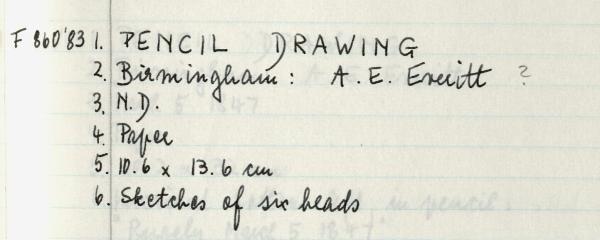 F 860'83 1. PENCIL DRAWING
2. Birmingham: A. E. Everitt ?
3. N.D.
4. Paper
5. 10.6 x 13.6 cm
6. Sketches of six heads